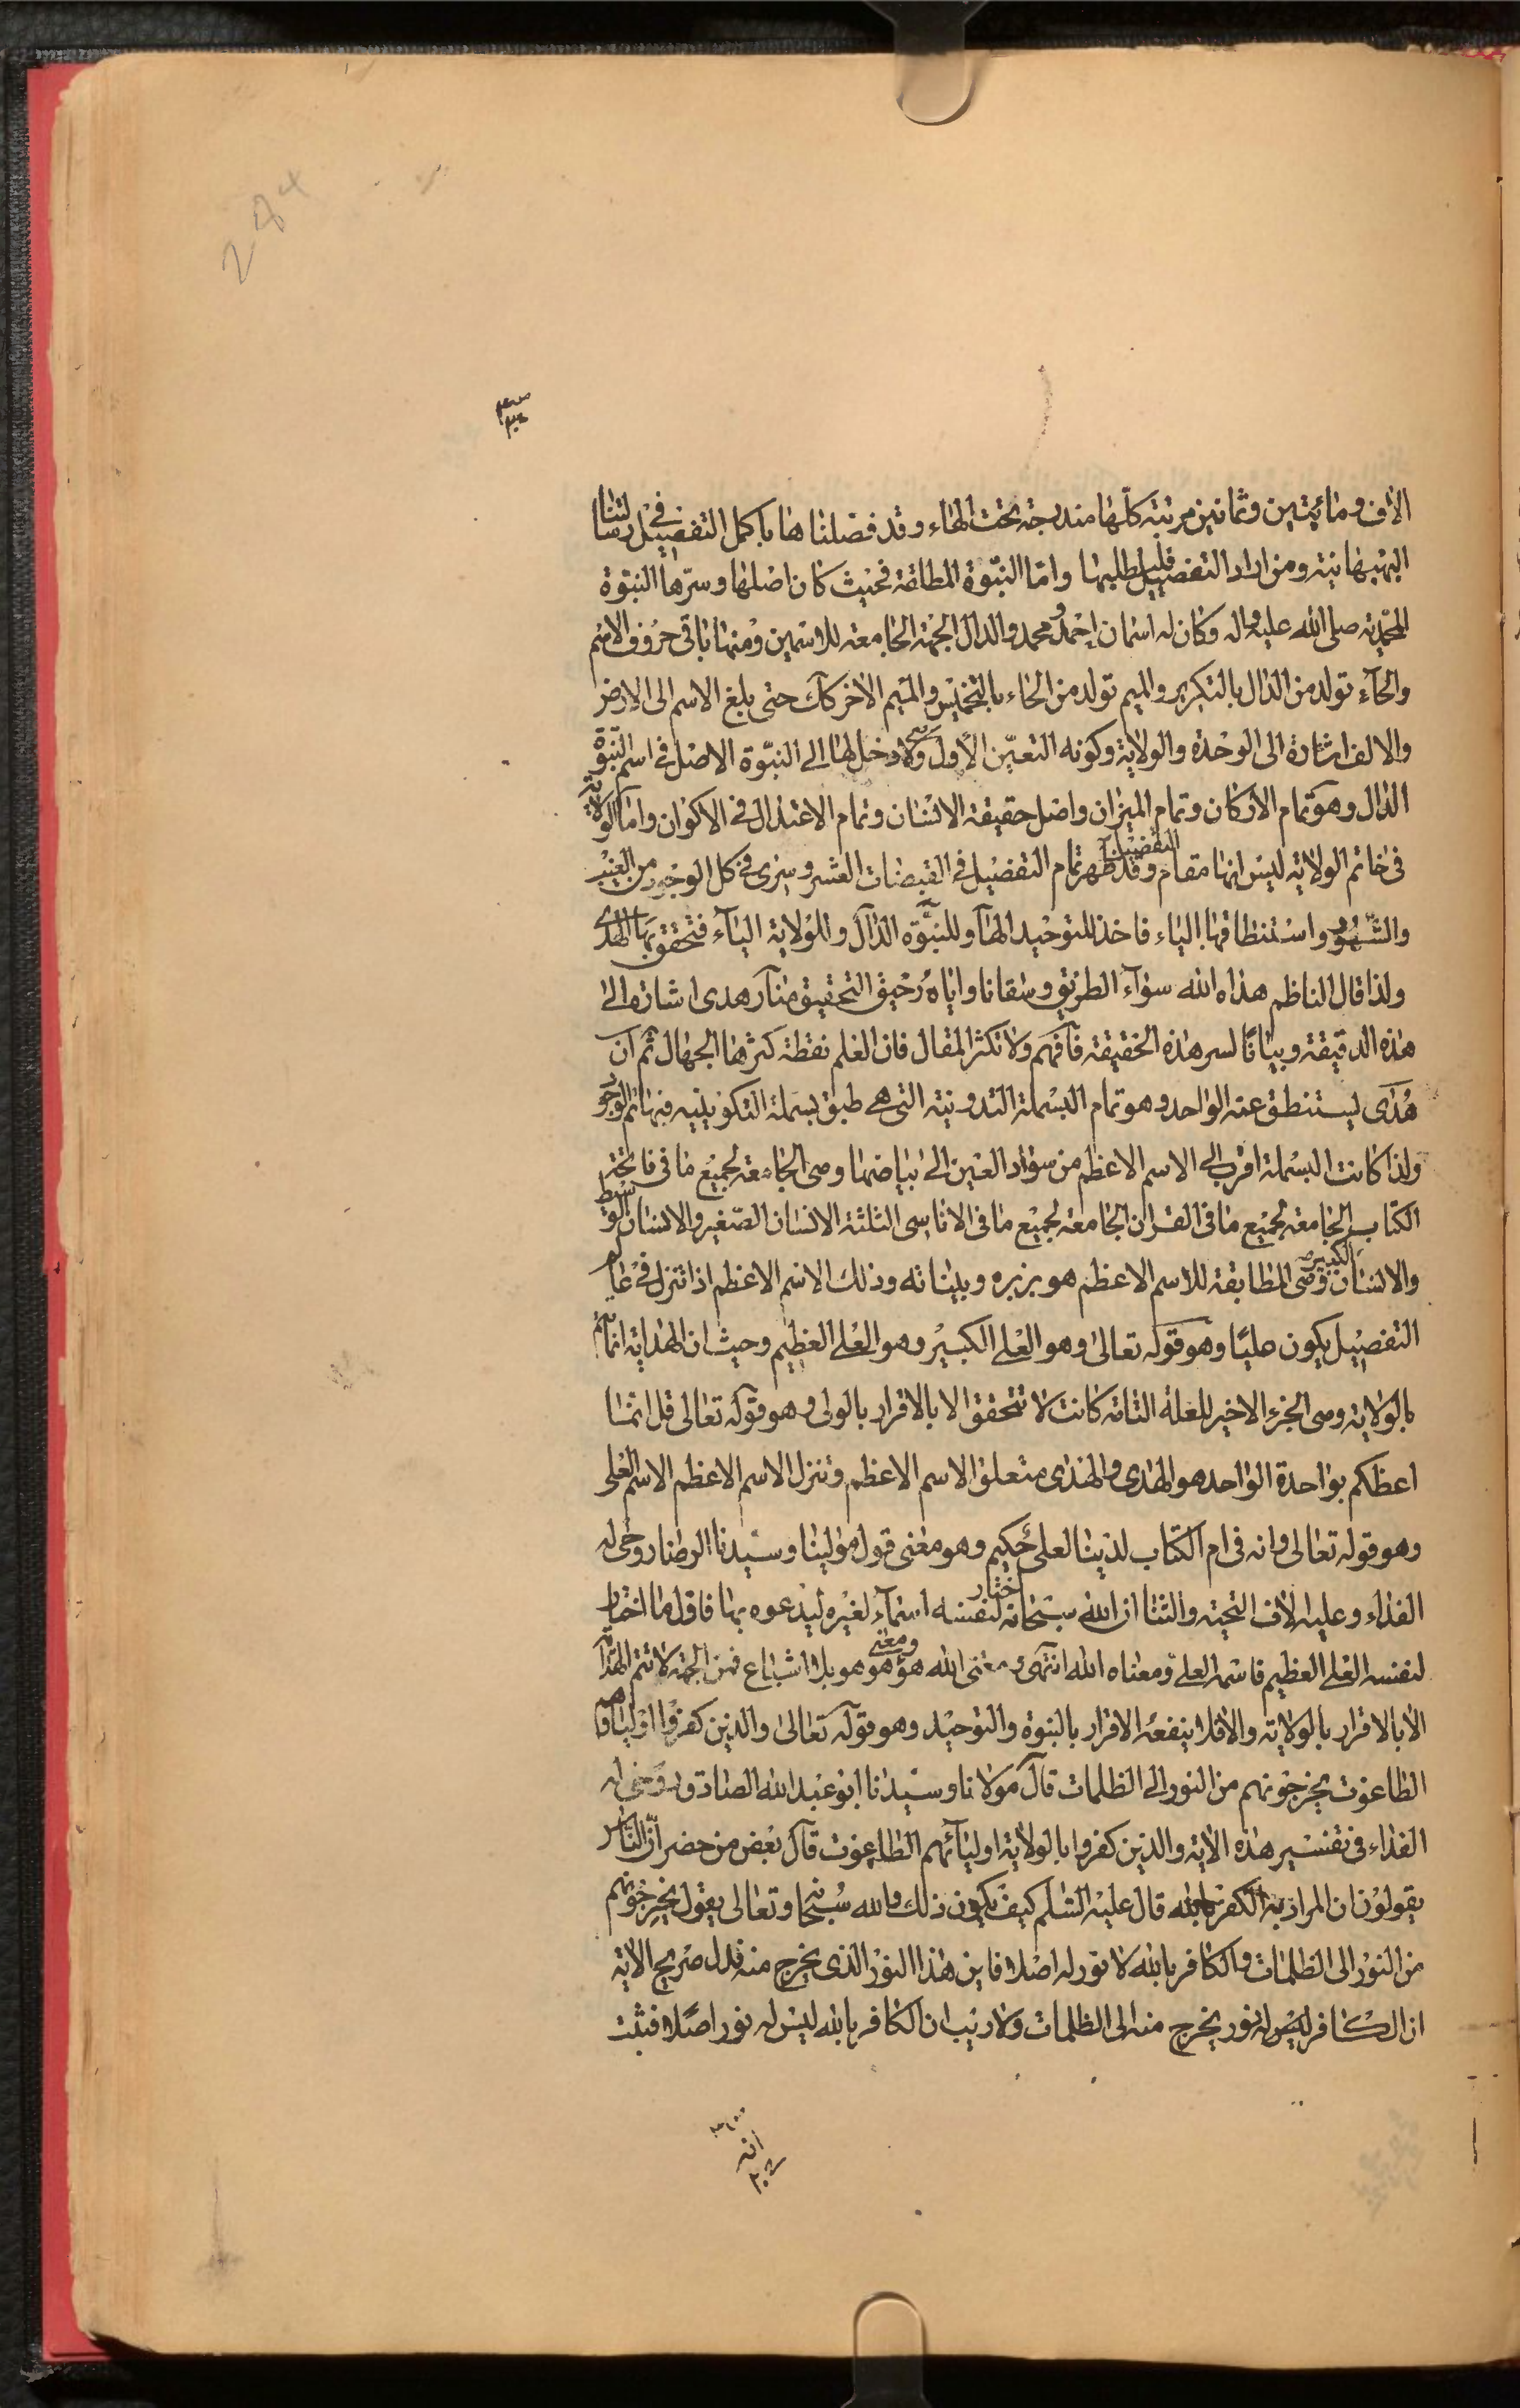 284
الاف ومائتين وثمانين مرتبة كلّها مندرجة تحت الهاء وقد فصلناها باكمل التفصيل في رسالتنا
البهبهانية ومن اراد التفصيل فليطلبها وامّا النبّوة المطلقة فحيث كان اصلها وسرّها النبّوة
المحمّدية صلى الله عليه واله وكان له اسمان احمد ومحمد والدال الجهة الجامعة للاسمين ومنها باقى حروف الاسم
والحآء تولد من الدال بالتكرير والميم تولد من الحاء بالتخميس والميم الاخر كك حتى بلغ الاسم الى الارض
والالف اشارة الى الوحدة والولاية وكونه التعيّن الاول ولا دخل لها الى النبّوة الاصل فى اسم النبّوة
الدال وهو تمام الاركان وتمام الميزان واصل حقيقة الانسان وتمام الاعتدال فى الاكوان واما الولاية
فى خاتم الولاية ليس انها مقام التفصيل وقد ظهر تمام التفصيل فى القبضات العشر وسرى فى كل الوجود من الغيب
والشّهود واستنطاقها الياء فاخذ للتوحيد الهآء وللنبّوة الدآل وللولاية اليآء فتحقق بها الهدى
ولذا قال الناظم هداه الله سوآء الطريق وسقانا واياه رُحيق التحقيق منآر هدى اشارة الى
هذه الدقيقة وبيانًا لسر هذه الحقيقة فآفهم ولا تكثر المقال فان العلم نقطة كثرها الجهال ثم ان
هُدَى يستنطق عنه الواحد وهو تمام البسملة التدونية التى هى طبق بسملة التكوينيه فبها تم الوجود
ولذا كانت البسملة اقرب الى الاسم الاعظم من سواد العين الى بياضها وهى الجامعة لجميع ما فى فاتحة
الكتاب الجامعة لجميع ما فى القران الجامعة لجميع ما فى الاناسى الثلثة الانسان الصّغير والانسان الوسط
والانسان الكبير وهى المطابقة للاسم الاعظم هو بزبره وبيناته وذلك الاسم الاعظم اذا تنزل فى عالم
التفصيل يكون عليًا وهو قوله تعالى وهو العلى الكبير وهو العلى العظيم وحيث ان الهداية انما تتم
بالولاية وهى الجزء الاخير للعلة التامة كانت لا تتحقق الا بالاقرار بالولى وهو قوله تعالى قل انما
اعظكم بواحدة الواحد هو الهدى والهدى متعلق الاسم الاعظم وتنزل الاسم الاعظم الاسم العلى
وهو قوله تعالى وانه فى ام الكتاب لدينا لعلى حكيم وهو معنى قول مولينا وسيدنا الرضا روحى له
الفداء وعليه الاف التحية والثنا ان الله سبحانه اختار لنفسه اسمآء لغيره ليدعوه بها فاول ما اختار
لنفسه العلى العظيم فاسمه العلى ومعناه الله انتهى ومعنى الله هو ومعنى هو هو بلا اشباع فمن الجهة لا تتم الهداية
الا بالاقرار بالولاية والا فلا ينفعه الاقرار بالنبوة والتوحيد وهو قوله تعالى والذين كفروا اولياؤهم
الطاغوت يخرجونهم من النور الى الظلمات قال مولانا وسيدنا ابو عبد الله الصادق روحى له
الفداء فى تفسير هذه الاية والذين كفروا بالولاية اوليآئهم الطاغوت قال بعض من حضر ان الناس
يقولون ان المراد به الكفر بالله قال عليه السّلم كيف يكون ذلك والله سُبحانه وتعالى يقول يخرجونهم
من النور الى الظلمات والكافر بالله لا نور له اصلا فاين هذا النور الذى يخرج منه فدل صريح الاية
ان الكافر ليس له نور يخرج منه الى الظلمات ولا ريب ان الكافر بالله ليس له نور اصلا فثبت
انه